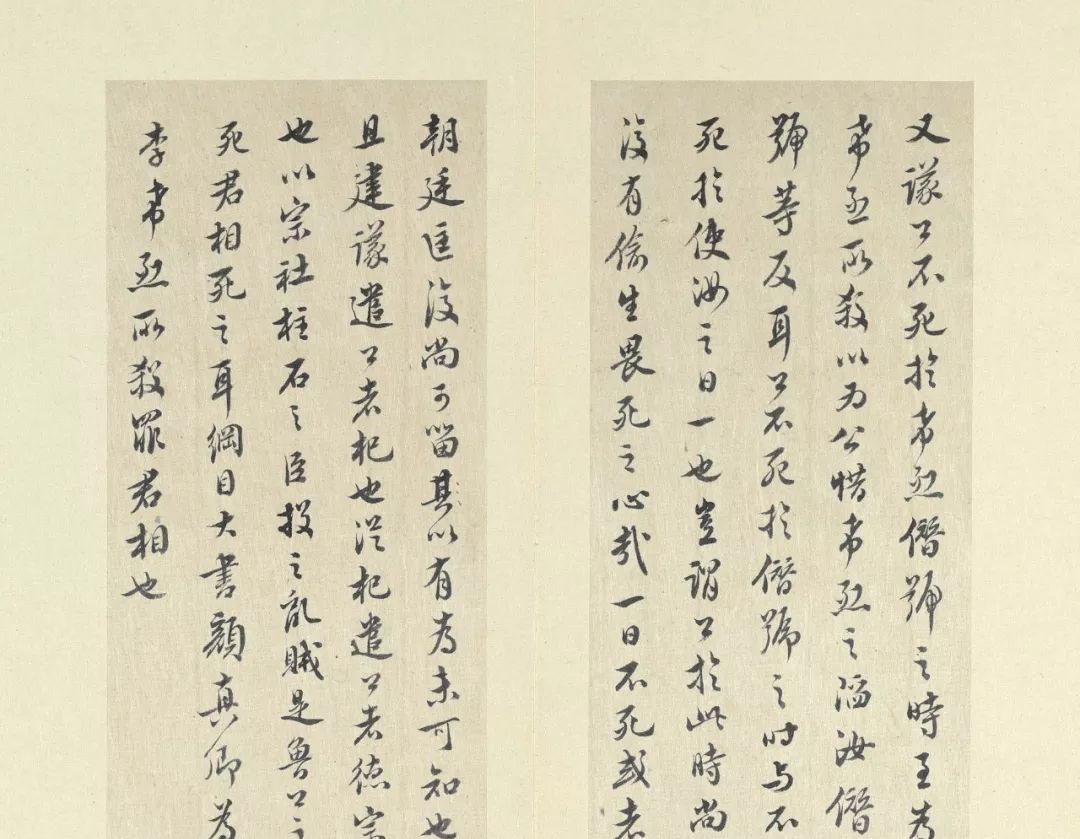 又議公不死於希烈僭號之時至為
希烈所殺以為公惜希烈之陷汝僭
號等反耳公不死於僭號之時与不
死於使汝之日一也豈謂公於此時尚
復有偷生畏死之心哉一日不死或者
朝廷匡復尚可留其以有為未可知也
且建議遣公者杞也從杞遣公者德宗
也以宗社柱石之臣投之亂賊是魯公之
死君相死之耳綱目大書顏真卿為
李希烈所殺罪君相也